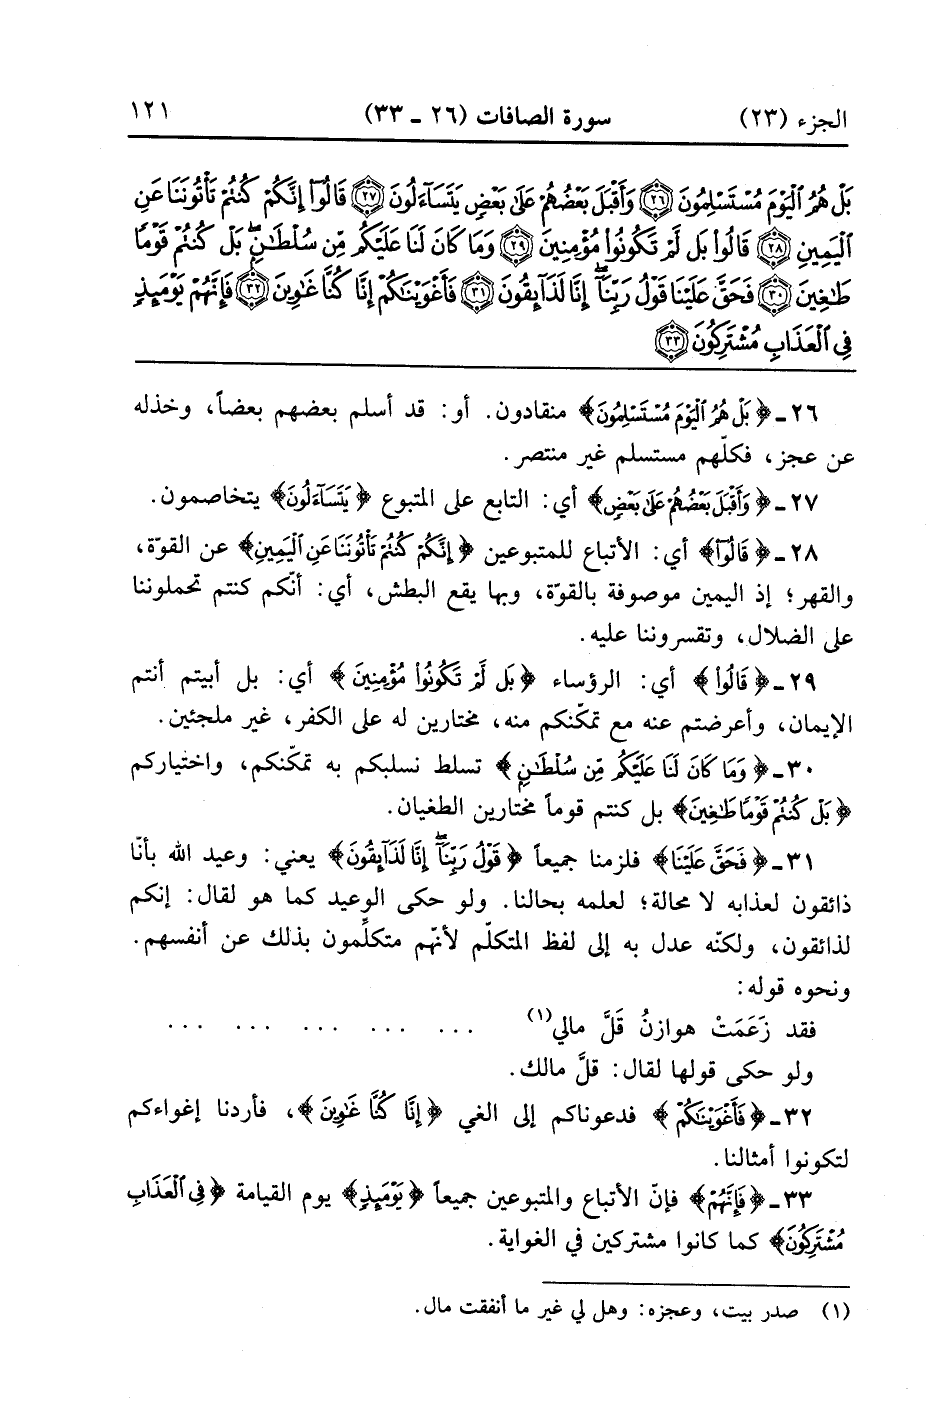 الجزء (٢٣) سورة الصافات (٢٦ ـ ٣٣) ١٢١
بَلْ هُمُ ٱلْيَوْمَ مُسْتَسْلِمُونَ ٢٦ وَأَقْبَلَ بَعْضُهُمْ عَلَىٰ بَعْضٍ يَتَسَآءَلُونَ ٢٧ قَالُوٓا۟ إِنَّكُمْ كُنتُمْ تَأْتُونَنَا عَنِ
ٱلْيَمِينِ ٢٨ قَالُوا۟ بَل لَّمْ تَكُونُوا۟ مُؤْمِنِينَ ٢٩ وَمَا كَانَ لَنَا عَلَيْكُم مِّن سُلْطَـٰنٍۭ ۖ بَلْ كُنتُمْ قَوْمًا
طَـٰغِينَ ٣٠ فَحَقَّ عَلَيْنَا قَوْلُ رَبِّنَآ ۖ إِنَّا لَذَآئِقُونَ ٣١ فَأَغْوَيْنَـٰكُمْ إِنَّا كُنَّا غَـٰوِينَ ٣٢ فَإِنَّهُمْ يَوْمَئِذٍ
فِى ٱلْعَذَابِ مُشْتَرِكُونَ ٣٣
٢٦ ـ ﴿بَلْ هُمُ ٱلْيَوْمَ مُسْتَسْلِمُونَ﴾ منقادون. أو: قد أسلم بعضهم بعضاً، وخذله
عن عجز، فكلّهم مستسلم غير منتصر.
٢٧ ـ ﴿وَأَقْبَلَ بَعْضُهُمْ عَلَىٰ بَعْضٍ﴾ أي: التابع على المتبوع ﴿يَتَسَآءَلُونَ﴾ يتخاصمون.
٢٨ ـ ﴿قَالُوٓا۟﴾ أي: الأتباع للمتبوعين ﴿إِنَّكُمْ كُنتُمْ تَأْتُونَنَا عَنِ ٱلْيَمِينِ﴾ عن القوّة،
والقهر؛ إذ اليمين موصوفة بالقوّة، وبها يقع البطش، أي: أنّكم كنتم تحملوننا
على الضلال، وتقسروننا عليه.
٢٩ ـ ﴿قَالُوا۟﴾ أي: الرؤساء ﴿بَل لَّمْ تَكُونُوا۟ مُؤْمِنِينَ﴾ أي: بل أبيتم أنتم
الإيمان، وأعرضتم عنه مع تمكّنكم منه، مختارين له على الكفر، غير ملجئين.
٣٠ ـ ﴿وَمَا كَانَ لَنَا عَلَيْكُم مِّن سُلْطَـٰنٍ﴾ تسلط نسلبكم به تمكّنكم، واختياركم
﴿بَلْ كُنتُمْ قَوْمًا طَـٰغِينَ﴾ بل كنتم قوماً مختارين الطغيان.
٣١ ـ ﴿فَحَقَّ عَلَيْنَا﴾ فلزمنا جميعاً ﴿قَوْلُ رَبِّنَآ ۖ إِنَّا لَذَآئِقُونَ﴾ يعني: وعيد الله بأنّا
ذائقون لعذابه لا محالة؛ لعلمه بحالنا. ولو حكى الوعيد كما هو لقال: إنكم
لذائقون، ولكنّه عدل به إلى لفظ المتكلّم لأنّهم متكلِّمون بذلك عن أنفسهم.
ونحوه قوله:
فقد زَعَمَتْ هوازنُ قَلَّ مالي(١) ... ... ... ... ...
ولو حكى قولها لقال: قلَّ مالك.
٣٢ ـ ﴿فَأَغْوَيْنَـٰكُمْ﴾ فدعوناكم إلى الغي ﴿إِنَّا كُنَّا غَـٰوِينَ﴾، فأردنا إغواءكم
لتكونوا أمثالنا.
٣٣ ـ ﴿فَإِنَّهُمْ﴾ فإنّ الأتباع والمتبوعين جميعاً ﴿يَوْمَئِذٍ﴾ يوم القيامة ﴿فِى ٱلْعَذَابِ
مُشْتَرِكُونَ﴾ كما كانوا مشتركين في الغواية.
(١) صدر بيت، وعجزه: وهل لي غير ما أنفقت مال.